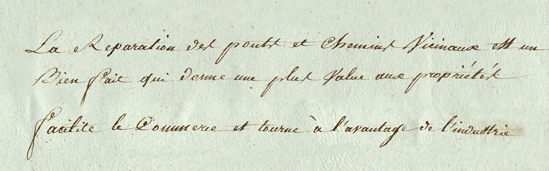 La Reparation des ponts et Chemins Vicinaux est un
Bien fait qui donne une plus Value aux propriétés
facilite le Commerce et tourne à l'avantage de l'industrie